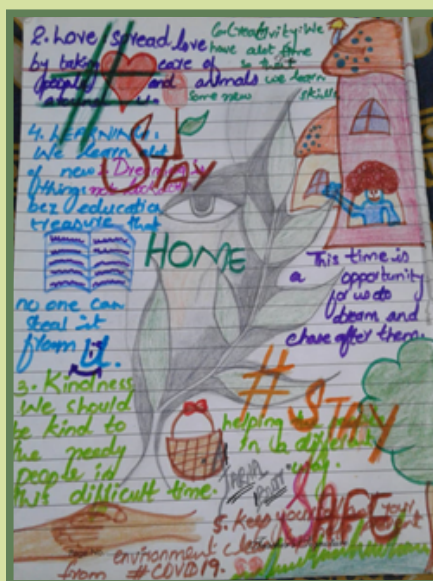 2. Love spread love
by taking care of
people and animals
around us
6. Creativity: We
have alot time
so that
we learn
some new skills.
# STAY
HOME
4. LEARNING:
We learn alot
of new
things
bcz education
treasure that
no one can
steal it
from U.
Dreaming is
not
This time is
a opportunity
for us to
dream and
chase after them.
3. Kindness
We should
be kind to
the needy
people in
this difficult time.
helping
in a different
way.
# STAY
SAFE
5. Keep your
environment clean
from #COVID19.